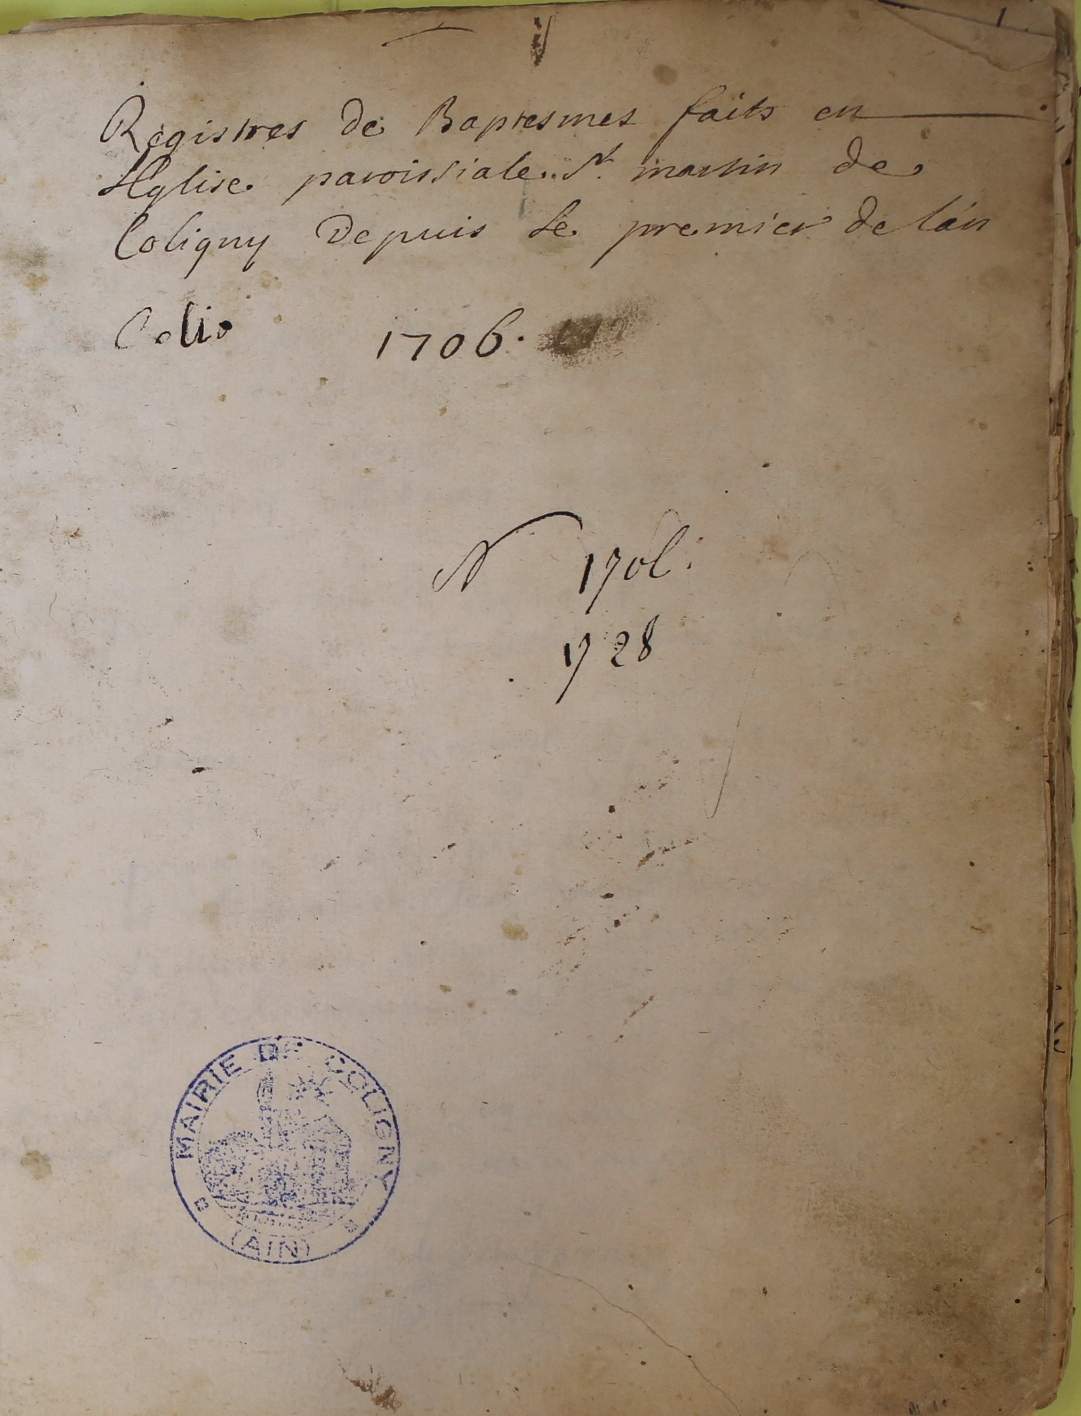 Registres de Baptesmes faits en
Leglise paroissiale St. martin de
Coligny Depuis Le premier de lan
1706.
N 1706.
1728
MAIRIE DE COLIGNY
(AIN)